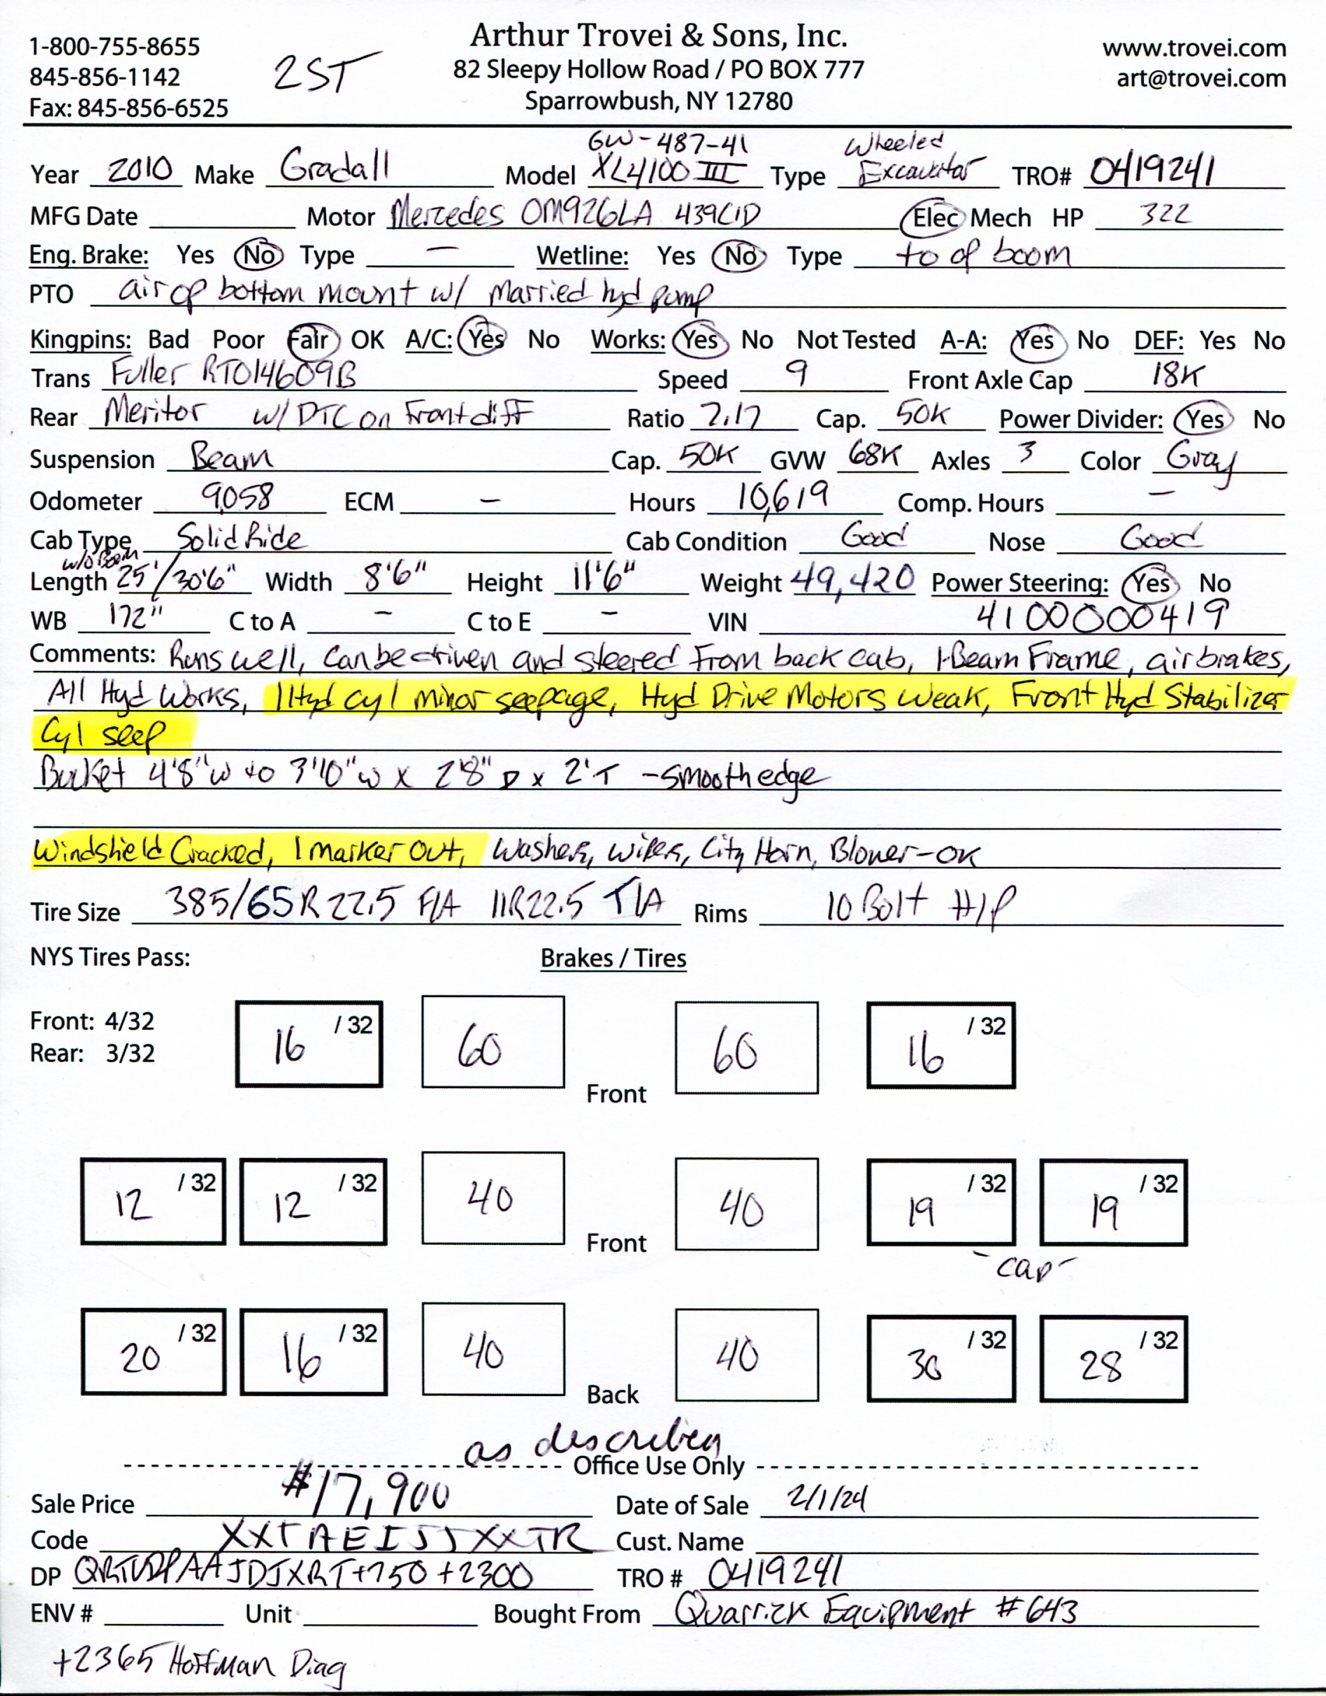 Arthur Trovei & Sons, Inc.
1-800-755-8655
845-856-1142
Fax: 845-856-6525
2ST
82 Sleepy Hollow Road / PO BOX 777
Sparrowbush, NY 12780
www.trovei.com
art@trovei.com
GW-487-41 Wheeled
Year 2010 Make Gradall Model XL4100 III Type Excavator TRO# 0419241
MFG Date Motor Mercedes OM926LA 439CID Elec Mech HP 322
Eng. Brake: Yes No Type — Wetline: Yes No Type to op boom
PTO air op bottom mount w/ married hyd pump
Kingpins: Bad Poor Fair OK A/C: Yes No Works: Yes No Not Tested A-A: Yes No DEF: Yes No
Trans Fuller RTO14609B Speed 9 Front Axle Cap 18K
Rear Meritor w/ DTC on Front diff Ratio 7.17 Cap. 50K Power Divider: Yes No
Suspension Beam Cap. 50K GVW 68K Axles 3 Color Gray
Odometer 9,058 ECM – Hours 10,619 Comp. Hours –
Cab Type Solid Ride Cab Condition Good Nose Good
w/o Boom
Length 25'/30'6" Width 8'6" Height 11'6" Weight 49,420 Power Steering: Yes No
WB 172" C to A – C to E – VIN 4100000419
Comments: Runs well, can be driven and steered from back cab, I-Beam Frame, air brakes,
All Hyd Works, 1 Hyd cyl minor seepage, Hyd Drive Motors weak, Front Hyd Stabilizer
Cyl seep
Bucket 4'8"w to 3'10"w x 2'8" D x 2'T - smooth edge
Windshield Cracked, 1 marker out, washers, wipers, City Horn, Blower-OK
Tire Size 385/65R22.5 F/A 11R22.5 T/A Rims 10 Bolt H/P
NYS Tires Pass: Brakes / Tires
Front: 4/32
Rear: 3/32
16 /32 60 Front 60 16 /32
12 /32 12 /32 40 Front 40 19 /32 19 /32
-cap-
20 /32 16 /32 40 Back 40 30 /32 28 /32
as described
Office Use Only
Sale Price $17,900 Date of Sale 2/1/24
Code Cust. Name
DP +750 +2300 TRO # 0419241
ENV # Unit Bought From Quarrick Equipment #643
+2365 Hoffman Diag